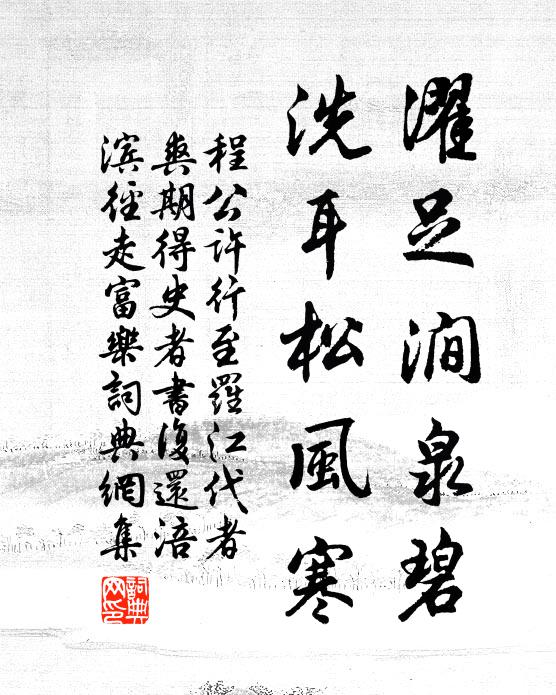 濯足澗泉碧
洗耳松風寒
程公許行至羅江代者
爽期得史者書復還涪
濱徑走富樂詞典網集
詞典
网印